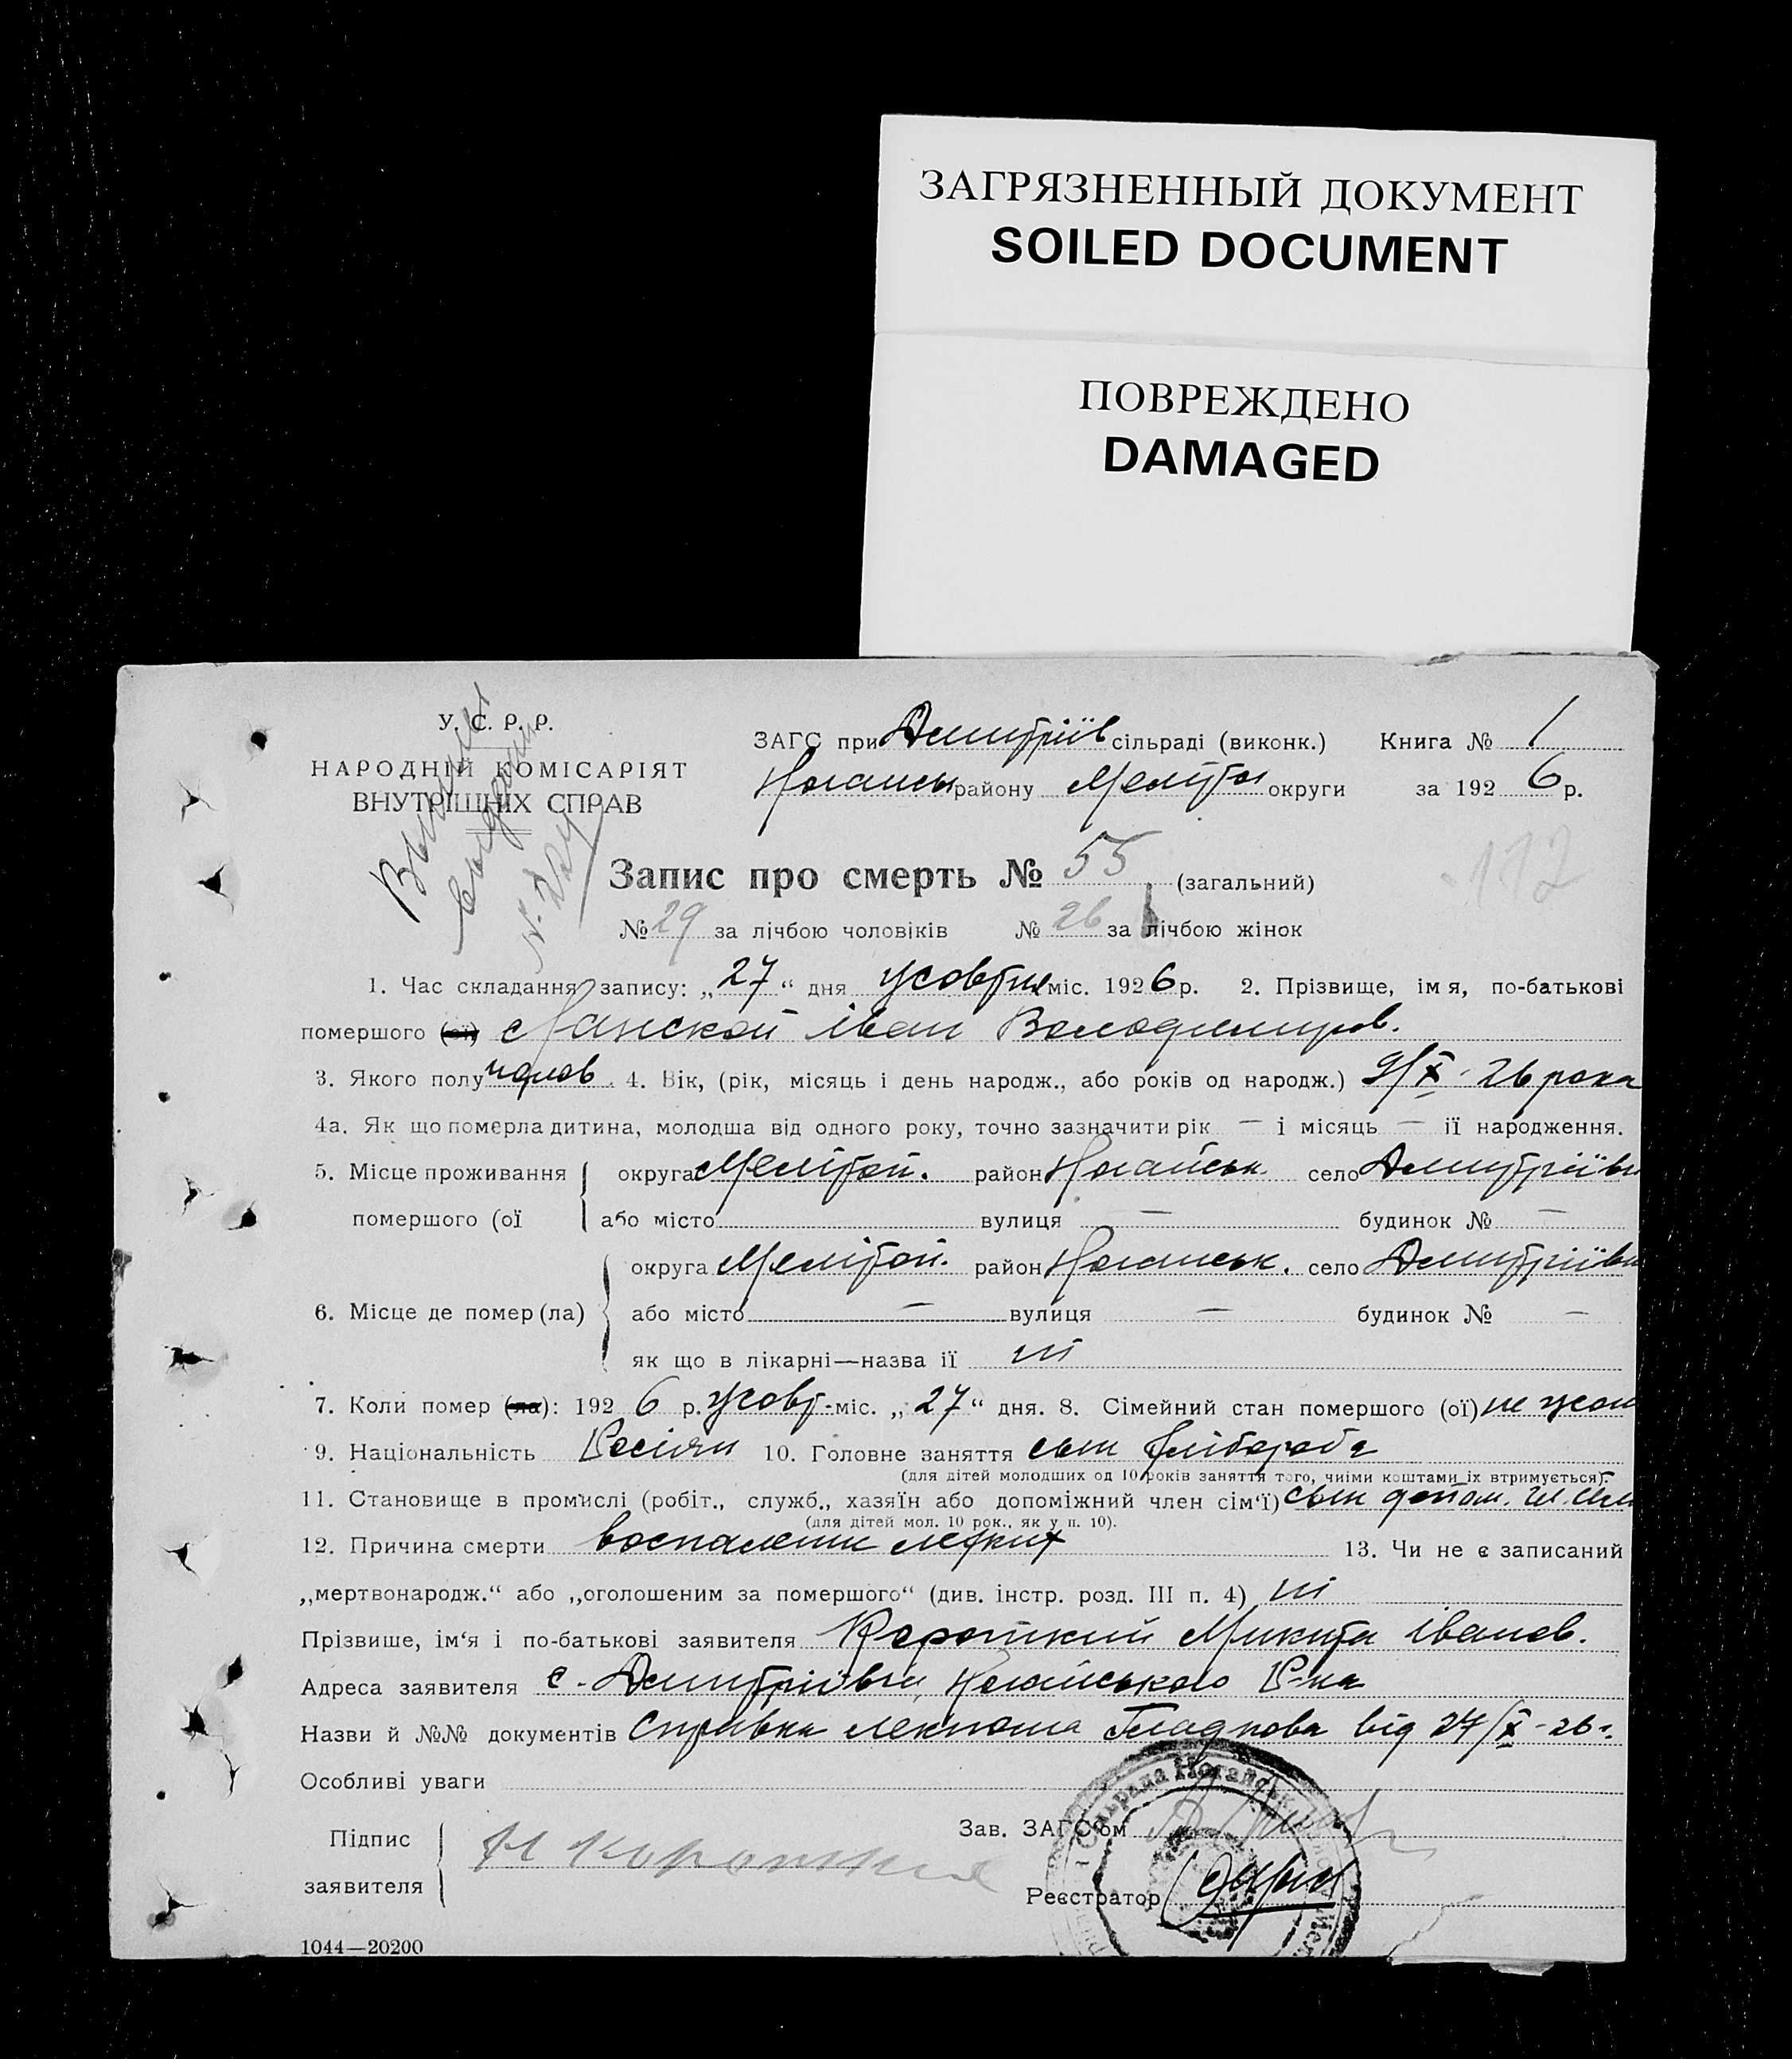 ЗАГРЯЗНЕННЫЙ ДОКУМЕНТ
SOILED DOCUMENT
ПОВРЕЖДЕНО
DAMAGED
У. С. Р. Р.
НАРОДНІЙ КОМІСАРІЯТ
ВНУТРІШНІХ СПРАВ
ЗАГС при Дмитріїв сільраді (виконк.) Книга № 1
району Меліт округи за 1926 р.
Запис про смерть № 55 (загальний)
№ 29 за лічбою чоловіків № 26 за лічбою жінок
112
1. Час складання запису: „27“ дня жовтня міс. 1926 р. 2. Прізвище, ім я, по-батькові
помершого (ої) Лакской Іван Володимиров.
3. Якого полу чолов. 4. Вік, (рік, місяць і день народж., або років од народж.) 9/X - 26 рока
4а. Як що померла дитина, молодша від одного року, точно зазначити рік — і місяць — ії народження.
5. Місце проживання округа Мелітоп. район Ногайськ. село Дмитріївка
помершого (ої або місто вулиця — будинок № —
округа Мелітоп. район Ногайськ. село Дмитріївка
6. Місце де помер (ла) або місто — вулиця — будинок № —
як що в лікарні—назва її ні
7. Коли помер (ла): 1926 р. жовт-міс. „27“ дня. 8. Сімейний стан помершого (ої) не жон
9. Національність Росіян 10. Головне заняття сын хлібороба
(для дітей молодших од 10 років заняття того, чиїми коштами їх втримується).
11. Становище в промислі (робіт., служб., хазяїн або допоміжний член сім'ї) сын допом.
(для дітей мол. 10 рок., як у п. 10).
12. Причина смерти воспаление легких 13. Чи не є записаний
„мертвонародж.“ або „оголошеним за помершого“ (див. інстр. розд. III п. 4) ні
Прізвише, ім'я і по-батькові заявителя Короткий Микита Іванов.
Адреса заявителя с. Дмитріївка, Ногайського Р-на
Назви й №№ документів справка лекпома Гладкова від 27/X - 26 г.
Особливі уваги
Підпис
заявителя
Н Короткий
Зав. ЗАГС'ом
Реєстратор
1044—20200